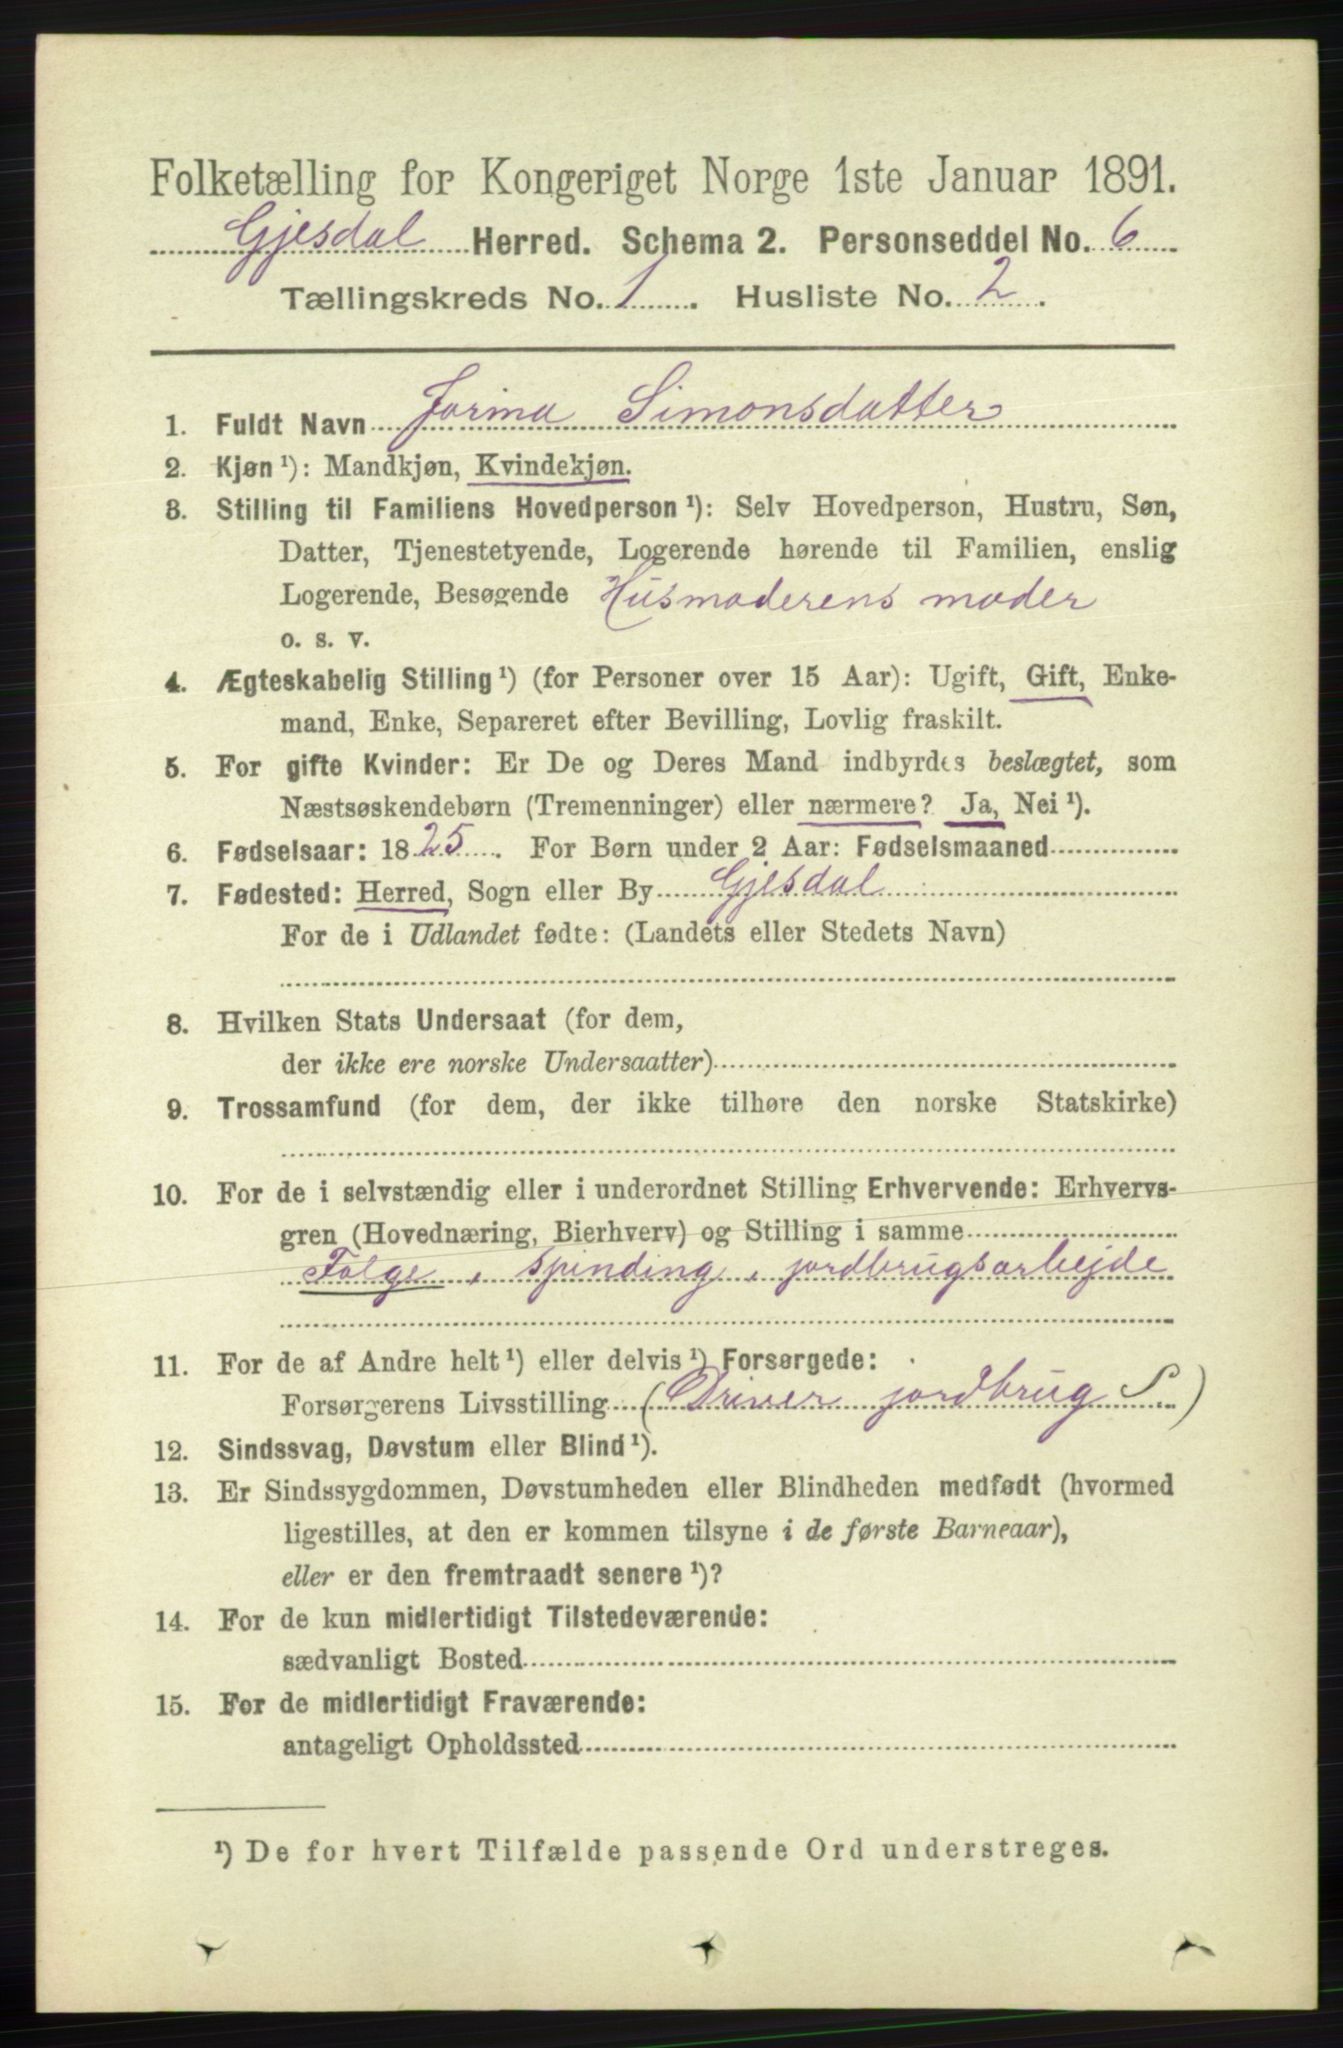 Folketælling for Kongeriget Norge 1ste Januar 1891.
Gjesdal Herred. Schema 2. Personseddel No. 6
Tællingskreds No. 1. Husliste No. 2.
1. Fuldt Navn Jorina Simonsdatter
2. Kjøn ¹): Mandkjøn, Kvindekjøn.
3. Stilling til Familiens Hovedperson ¹): Selv Hovedperson, Hustru, Søn,
Datter, Tjenestetyende, Logerende hørende til Familien, enslig
Logerende, Besøgende Husmoderens moder
o. s. v.
4. Ægteskabelig Stilling ¹) (for Personer over 15 Aar): Ugift, Gift, Enke-
mand, Enke, Separeret efter Bevilling, Lovlig fraskilt.
5. For gifte Kvinder: Er De og Deres Mand indbyrdes beslægtet, som
Næstsøskendebørn (Tremenninger) eller nærmere? Ja, Nei ¹).
6. Fødselsaar: 1825. For Børn under 2 Aar: Fødselsmaaned
7. Fødested: Herred, Sogn eller By Gjesdal
For de i Udlandet fødte: (Landets eller Stedets Navn)
8. Hvilken Stats Undersaat (for dem,
der ikke ere norske Undersaatter)
9. Trossamfund (for dem, der ikke tilhøre den norske Statskirke)
10. For de i selvstændig eller i underordnet Stilling Erhvervende: Erhvervs-
gren (Hovednæring, Bierhverv) og Stilling i samme
Folge, spinding, jordbrugsarbejde
11. For de af Andre helt ¹) eller delvis ¹) Forsørgede:
Forsørgerens Livsstilling (Driver jordbrug S.)
12. Sindssvag, Døvstum eller Blind ¹).
13. Er Sindssygdommen, Døvstumheden eller Blindheden medfødt (hvormed
ligestilles, at den er kommen tilsyne i de første Barneaar),
eller er den fremtraadt senere ¹)?
14. For de kun midlertidigt Tilstedeværende:
sædvanligt Bosted
15. For de midlertidigt Fraværende:
antageligt Opholdssted
¹) De for hvert Tilfælde passende Ord understreges.